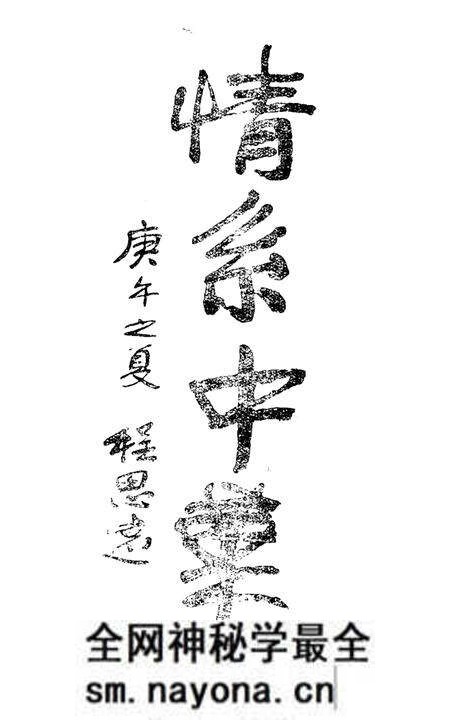 情系中華
庚午之夏 程思遠
全网神秘学最全
sm.nayona.cn